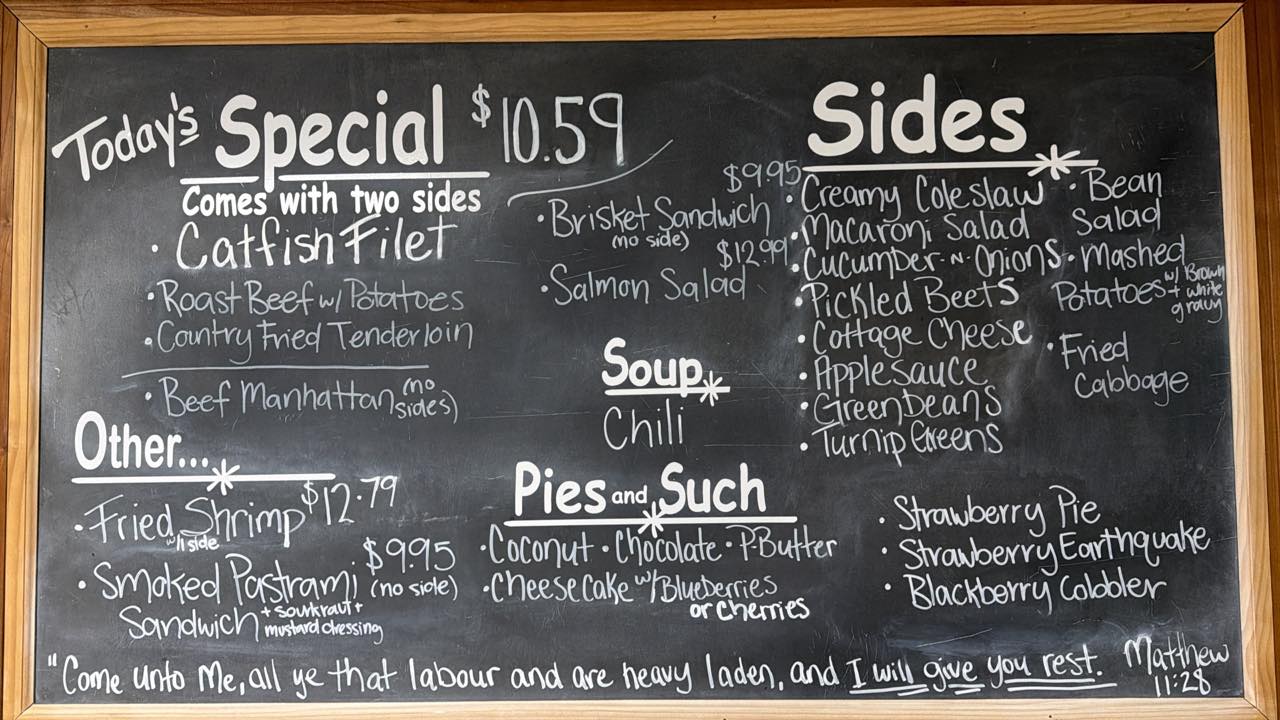 Today's Special $10.59
Comes with two sides
· Catfish Filet
· Roast Beef w/ Potatoes
· Country Fried Tenderloin
· Beef Manhattan (no sides)
$9.95
· Brisket Sandwich
(no side)
$12.99
· Salmon Salad
Soup
Chili
Sides
· Creamy Coleslaw
· Macaroni Salad
· Cucumber-N-Onions
· Pickled Beets
· Cottage Cheese
· Applesauce
· Green beans
· Turnip Greens
· Bean
Salad
· Mashed
Potatoes w/ Brown
+ white
gravy
· Fried
Cabbage
Other...
· Fried Shrimp $12.79
w/1 side
· Smoked Pastrami $9.95 (no side)
Sandwich + sourkraut +
mustard dressing
Pies and Such
· Coconut · Chocolate · P-Butter
· Cheesecake w/ Blueberries
or cherries
· Strawberry Pie
· Strawberry Earthquake
· Blackberry Cobbler
"Come unto Me, all ye that labour and are heavy laden, and I will give you rest. Matthew
11:28